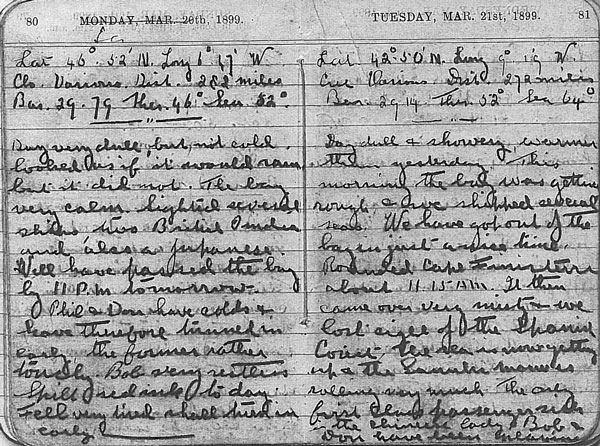 80 MONDAY, MAR. 20th, 1899.
Lat 46° 52' N. Long 6° 47' W
Cls. Various Dist. 282 miles
Bar. 29.79 Ther. 46° Sea 52°
Day very dull, but not cold.
looked as if it would rain
but it did not. The bay
very calm. Sighted several
ships two British India
and also a Japanese.
Will have passed the bay
by 11 P.M. tomorrow.
Phil & Don have colds &
have therefore turned in
early. the former rather
Bob very restless
Spilt red ink to day.
Fell very tired shall turn in
early
TUESDAY, MAR. 21st, 1899. 81
Lat 42° 50' N. Long 9° 19 W.
Various Dist 272 miles
Bar 29 14 Ther. 52° Sea 64°
Day dull & showery, warmer
than yesterday. This
morning the bay was getting
rough & we shipped several
seas. We have got out of the
bay in just a nice time.
Rounded Cape Finisterre
about 11.15 AM. It then
came over very misty & we
lost of the Spanish
Coast. The sea is now getting
up & the
rolling very much The only
first class passenger sick
the Chinese lady. Bob &
Don have been